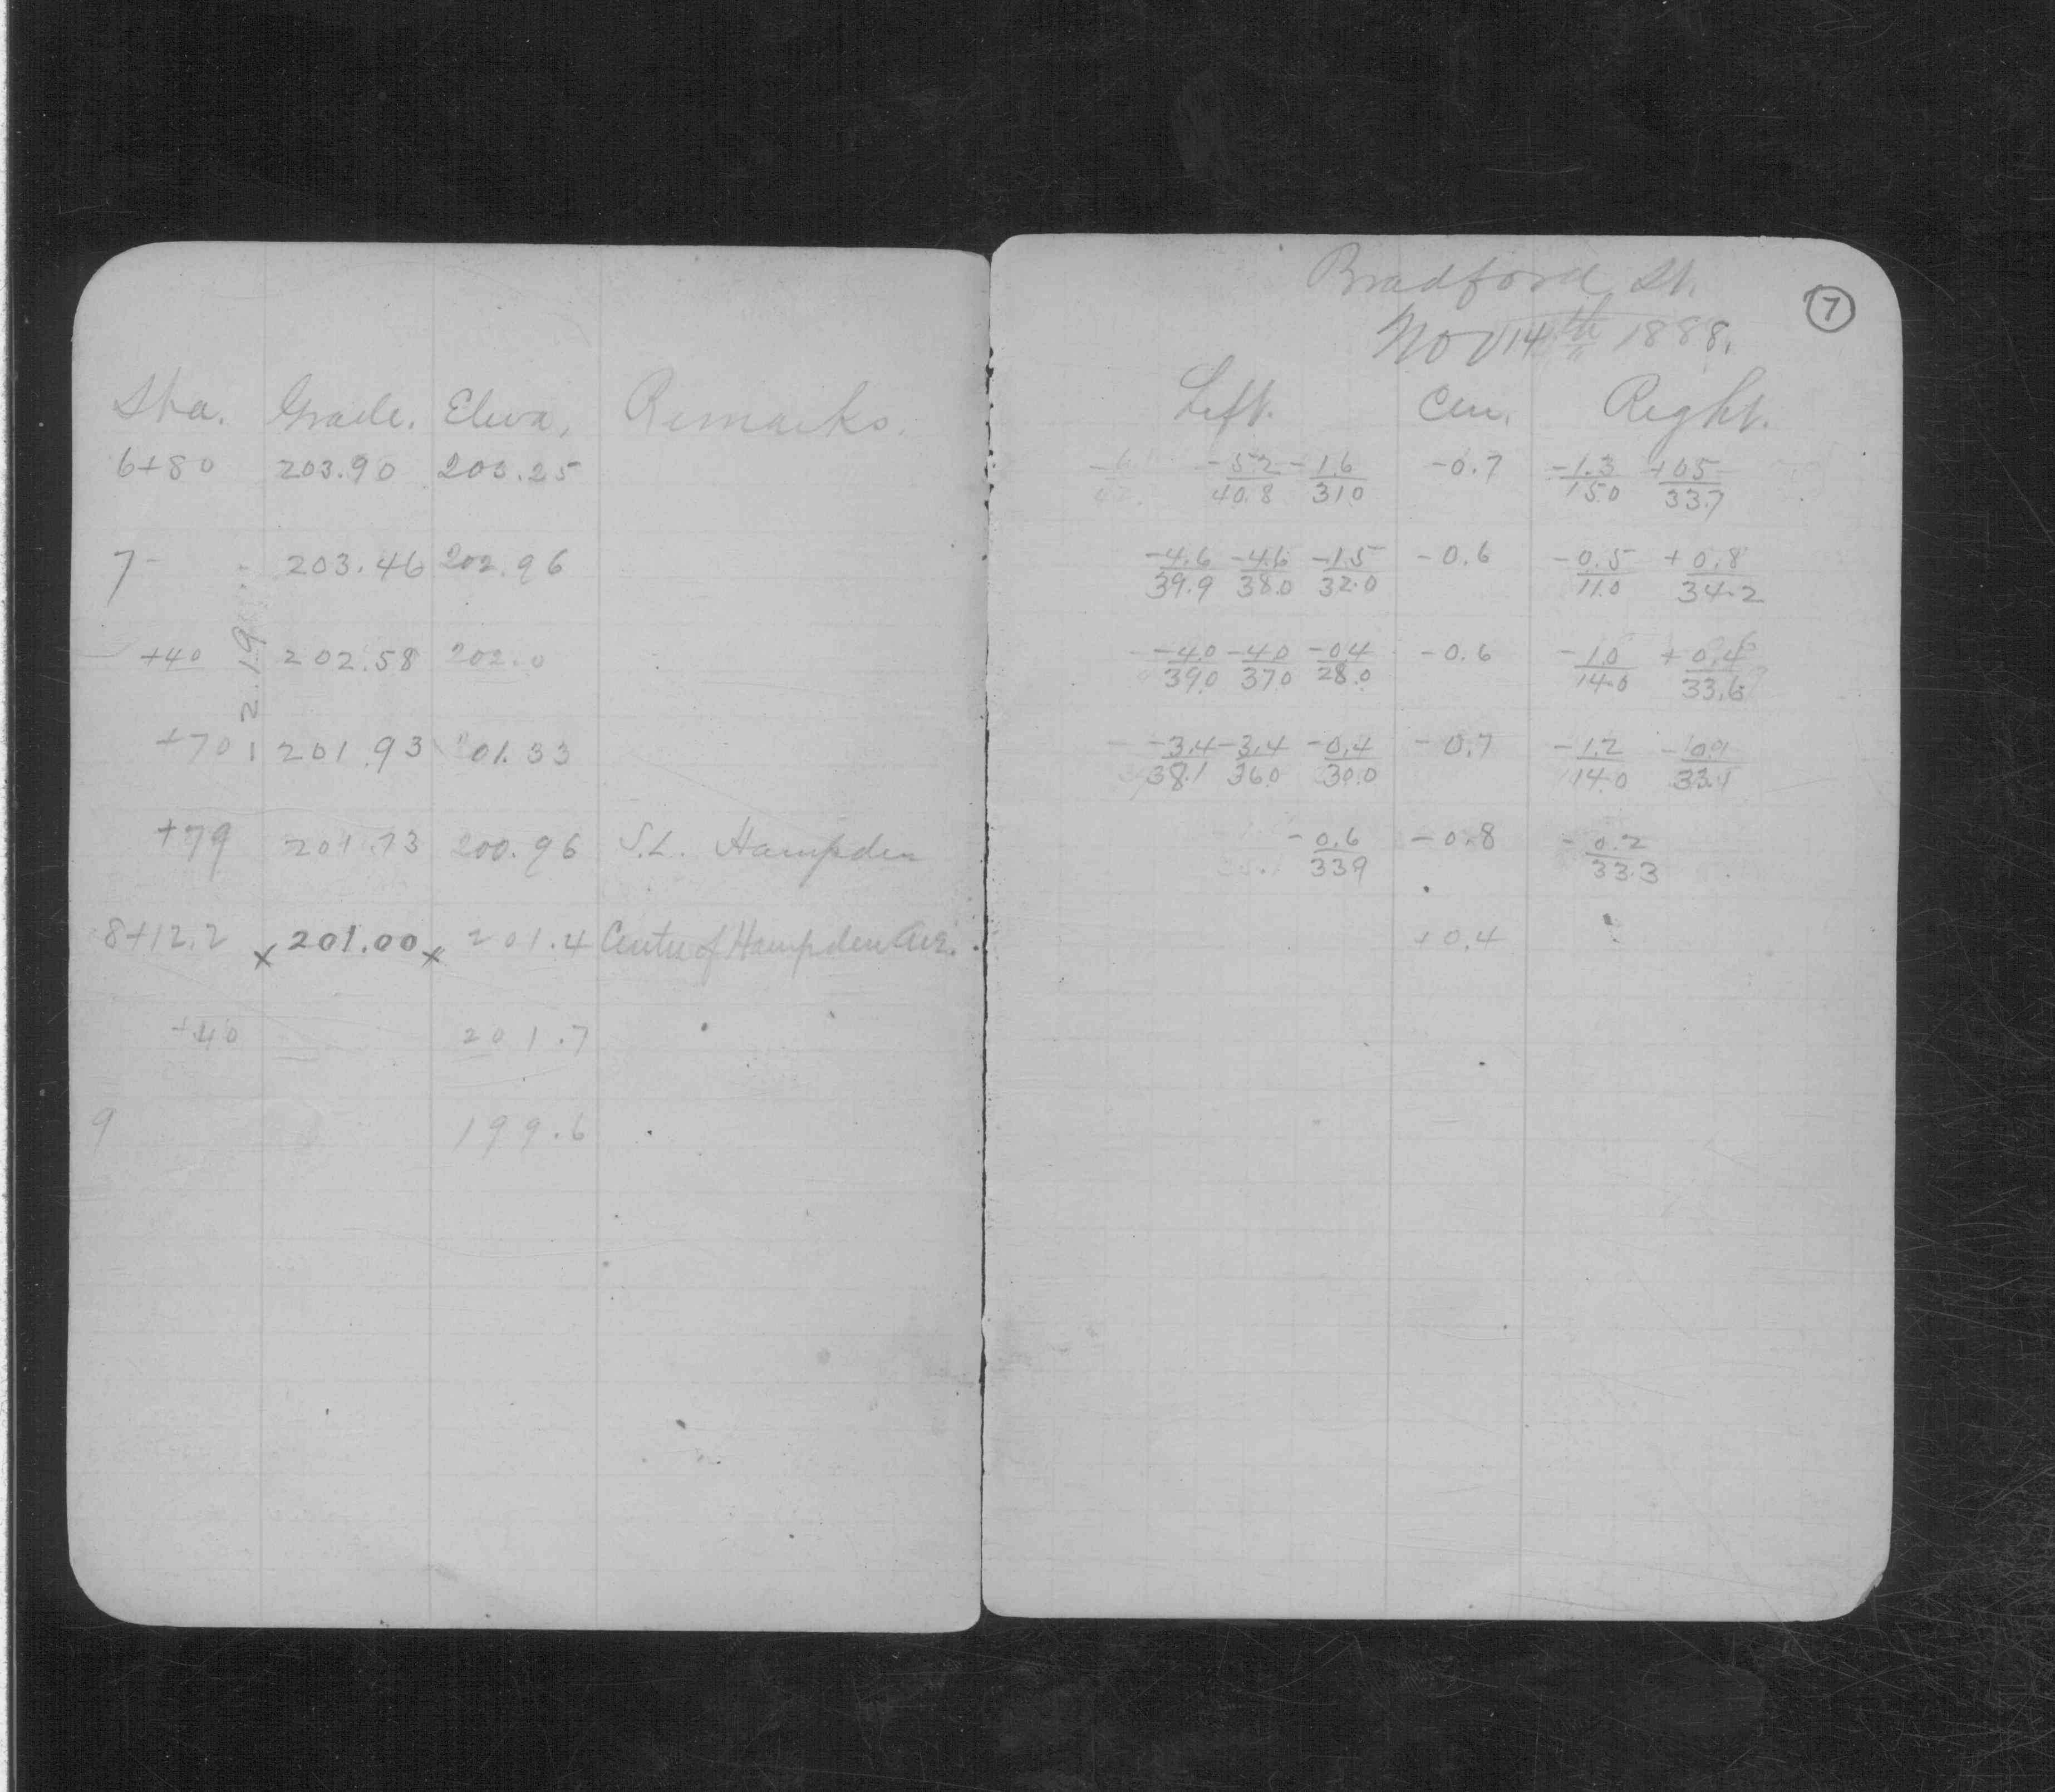 Sta. Grade. Eleva. Remarks.
6+80 203.90 203.25
7- 203.46 202.96
+40 202.58 202.0
2.19
+70 201.93 201.33
+79 201.73 200.96 S.L. Hampden
8+12.2 x 201.00 x 201.4 Centre of Hampden Ave.
+40 201.7
9 199.6
Bradford St.
7
Nov 14th 1888.
Left. Cen. Right.
-5.2 -1.6 -0.7 -1.3 +0.5
40.8 31.0 15.0 33.7
-4.6 -4.6 -1.5 -0.6 -0.5 +0.8
39.9 38.0 32.0 11.0 34.2
-4.0 -4.0 -0.4 -0.6 -1.0 +0.4
39.0 37.0 28.0 14.0 33.6
-3.4 -3.4 -0.4 -0.7 -1.2
38.1 36.0 30.0 14.0 33.1
-0.6 -0.8 -0.2
33.9 33.3
+0.4